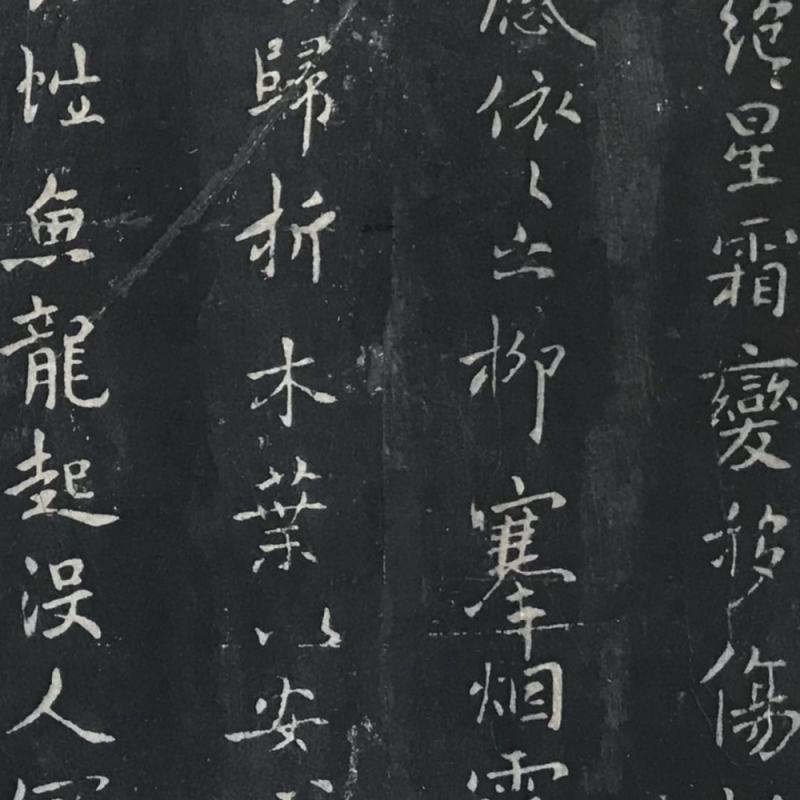 絕星霜變移傷
感依〻之柳搴烟雲
歸折木葉以安
怪魚龍起沒人